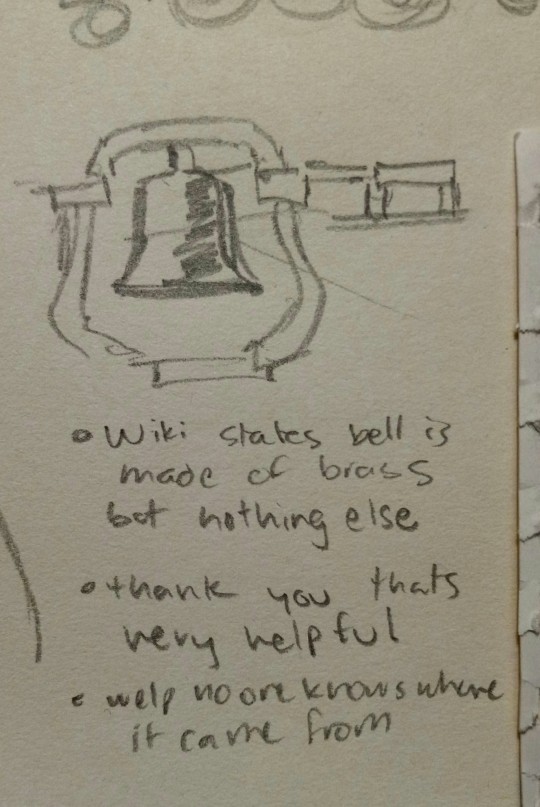 • Wiki states bell is
made of brass
but nothing else
• thank you thats
very helpful
• welp no one knows where
it came from